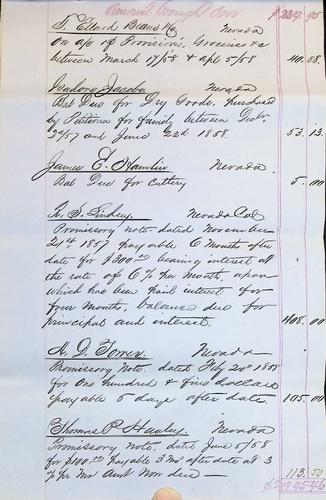 Amount brought Over $2264.95
T. Ellard Beans Nevada
On a/c of Provisions, Groceries &c
between March 17/58 & Apl 5/58 40.88
Isadore Jacobs Nevada
Bal Due for Dry Goods, Purchased
by Petitioner for family between
and June 22d 1858. 53.13
James E. Hamlin Nevada
Bal Due for Cutlery 5.00
Nevada Cal
Promissory note dated November
21st 1857 payable 6 Months after
date for $300.00 bearing interest at
the rate of 6 % per Month upon
which has been paid interest for
four months, balance due for
principal and interest. 408.00
Nevada
Promissory Note, dated Feby 20th 1858
for One hundred & five dollars
payable 5 days after date 105.00
Thomas P. Hawley Nevada
Promissory note, dated June 5/58
for $100.00 Payable 3 Ms after date at 3
pr Mo Amt Now due 113.50